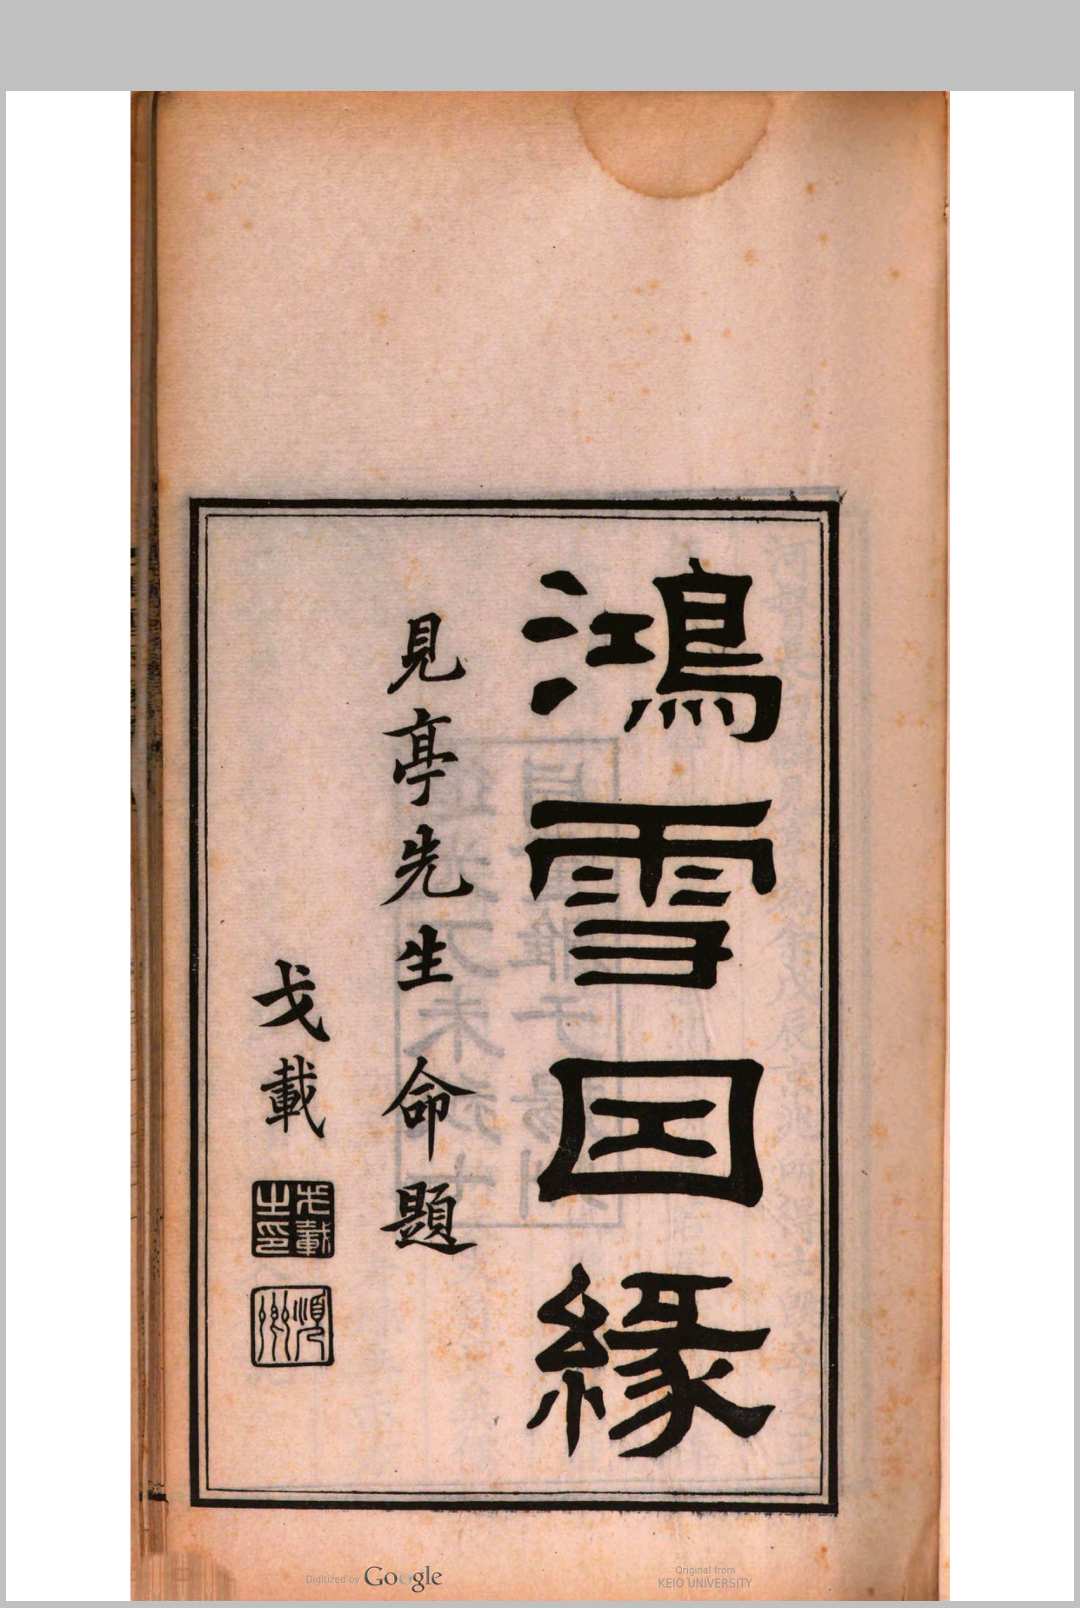 鴻雪因緣
見亭先生 命題
戈載
戈載之印
順卿
Digitized by Google
Original from
KEIO UNIVERSITY